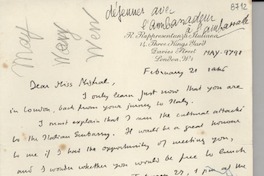 May
Wery
Wen
déjeuner avec
l'ambassadeur
à l'ambassade
8792
R. Rappresentanza Italiana
14 Three Kings Yard
Davies Street
London W.1
MAY. 7791
February 21
Dear Miss Mistral,
I only learn just now that you are
in London, back from your journey to Italy.
I must explain that I am the cultural attaché
to the Italian Embassy. It would be a great honour
to me if I had the opportunity of meeting you,
and I wonder whether you would be free to lunch